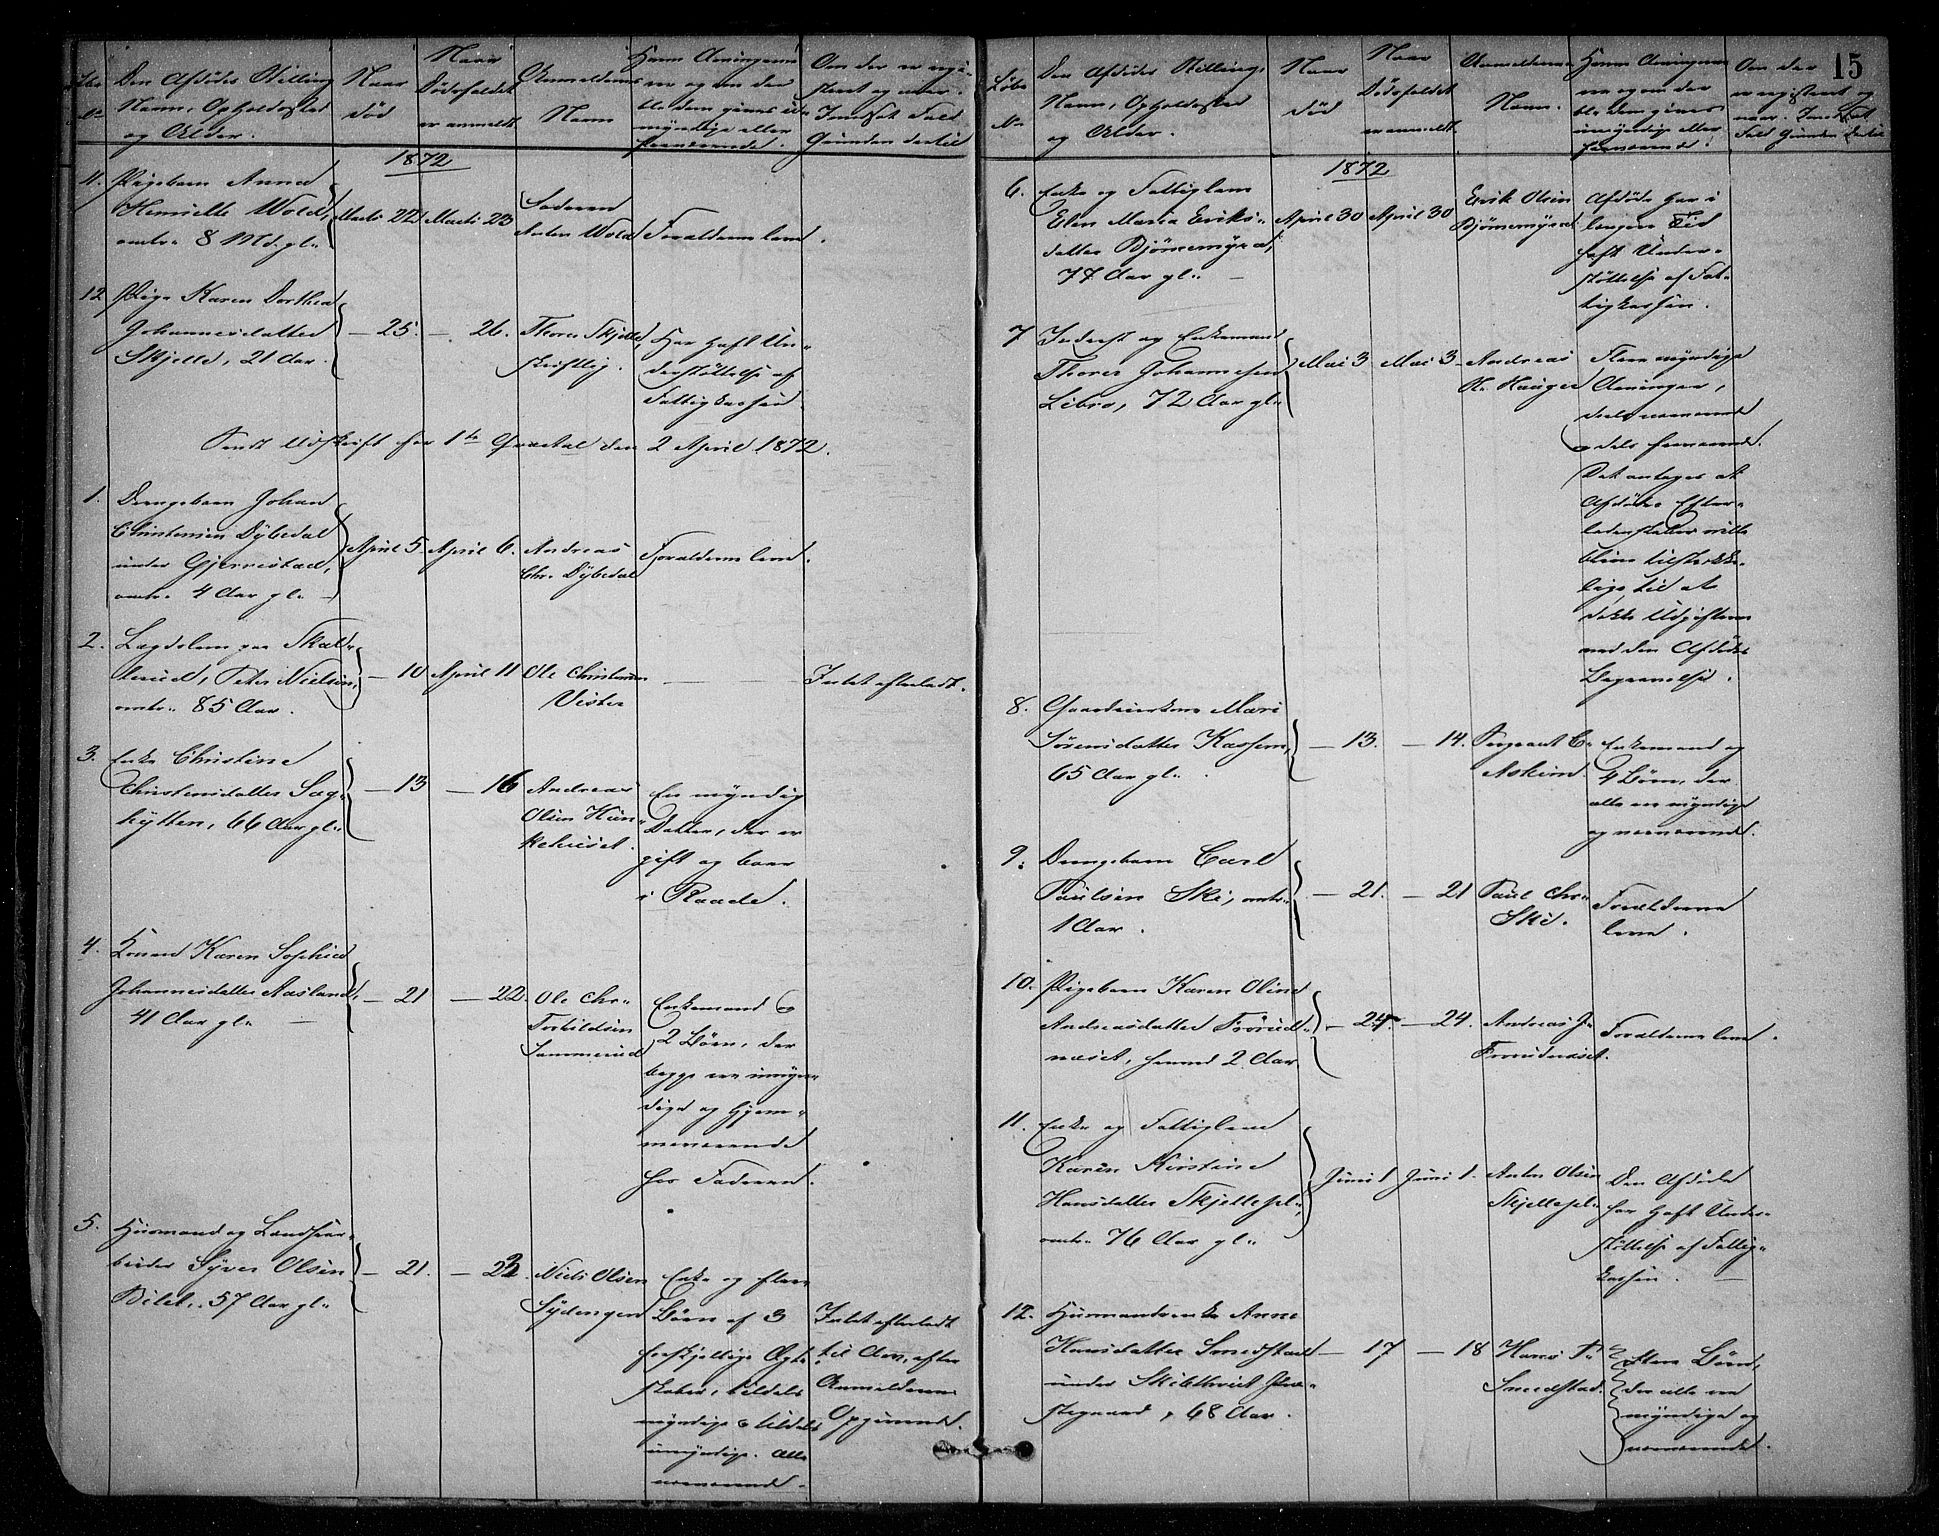 Løbe
No
Den Afdødes Stilling
Navn, Opholdssted
og Alder.
Naar
død
Naar
Dødsfaldet
er anmeldt
Anmelderens
Navn
Hvem Arvingerne
ere og om der
blandt dem gives u-
myndige eller
fraværende.
Om der er regi-
streret og naar.
I modsat Fald
Grunden dertil
1872
11. Pigebarn Anna
Henriette Wold,
omtr. 8 Md. gl.
Marts 22 Marts 23
Faderen
Anton Wold
Forældrene leve.
12 Pige Karen Dorthea
Johannesdatter
Skjelle, 21 Aar.
— 25. — 26.
Thorer Skjelle,
skriftlig.
Har havt Un-
derstøttelse af
Fattigkassen.
Sendt Udskrift for 1te Qvartal den 2 April 1872.
1. Drengebarn Johan
Christensen Dybedal
under Gjernestad,
omtr. 4 Aar gl. —
April 5. April 6.
Andreas
Chr. Dybedal
Forældrene leve.
2. Lægdslem paa Skal-
lerud, Peter Nielsen,
omtr. 85 Aar.
— 10 April 11
Ole Christensen
Vister
Intet efterladt.
3. Enke Christine
Christensdatter Sag-
hytten, 66 Aar gl.
— 13 — 16
Andreas
Olsen Hun-
kehuset.
En myndig
Datter, der er
gift og boer
i Raade.
4. Konen Karen Sophie
Johannesdatter Aasland,
41 Aar gl. —
— 21 — 22.
Ole Chr.
Torkildsen
Sommerud
Enkemand &
2 Børn, der
begge ere umyn-
dige og hjem-
meværende
hos Faderen.
5. Husmand og Landhuar-
beider Syver Olsen
Bilet, 57 Aar gl.
— 21. — 22.
Niels Olsen
Sydengen
Enke og flere
Børn af 3
forskjellige Ægte-
skaber, tildels
myndige & tildels
umyndige. Alle
nærværende.
Intet efterladt
til Arv, efter
Anmelderens
Opgivende.
15
Løbe
No
Den Afdødes Stilling
Navn, Opholdssted
og Alder.
Naar
død
Naar
Dødsfaldet
er anmeldt
Anmelderens
Navn.
Hvem Arvingerne
ere og om der
bl. dem gives
umyndige eller
fraværende.
Om der
er registreret og
naar. I modsat
Fald Grunden dertil
1872
6. Enke og Fattiglem
Elen Maria Eriks-
datter Bjørnemyra,
77 Aar gl. —
April 30 April 30
Erik Olsen
Bjørnemyra
Afdøde har i
længere Tid
havt Under-
støttelse af Fat-
tigkassen.
7 Inderst og Enkemand
Thorer Johannesen
Libro, 72 Aar gl.
Mai 3 Mai 3
Andreas
H. Hauger
Flere myndige
Arvinger,
dels nærværende
dels fraværende.
Det antages at
Afdødes Efter-
ladenskaber ville
blive tilstrække-
lige til at
dække Udgifterne
ved den Afdødes
Begravelse.
8. Gaardeierkone Mari
Sørensdatter Kassem,
65 Aar gl.
— 13. — 14.
Sergeant C.
Askim
Enkemand og
4 Børn, der
alle ere myndige
og nærværende.
9. Drengebarn Carl
Paulsen Ski, omtr.
1 Aar.
— 21. — 21
Paul Chr.
Ski.
Forældrene
leve.
10. Pigebarn Karen Oline
Andreasdatter Frorud-
næset, henved 2 Aar
— 24. — 24.
Andreas J.
Frorudnæset.
Forældrene leve.
11. Enke og Fattiglem
Karen Kirstine
Hansdatter Skjellepl.,
omtr. 76 Aar gl.
Juni 1 Juni 1.
Anton Olsen
Skjellepl.
Den Afdøde
har havt Under-
støttelse af Fattig-
kassen. —
12. Husmandsenke Anne
Hansdatter Smedstad
under Skibthvet Præ-
stegaard, 68 Aar.
— 17 — 18
Hans P.
Smedstad.
Flere Børn,
der alle ere
myndige og
nærværende.